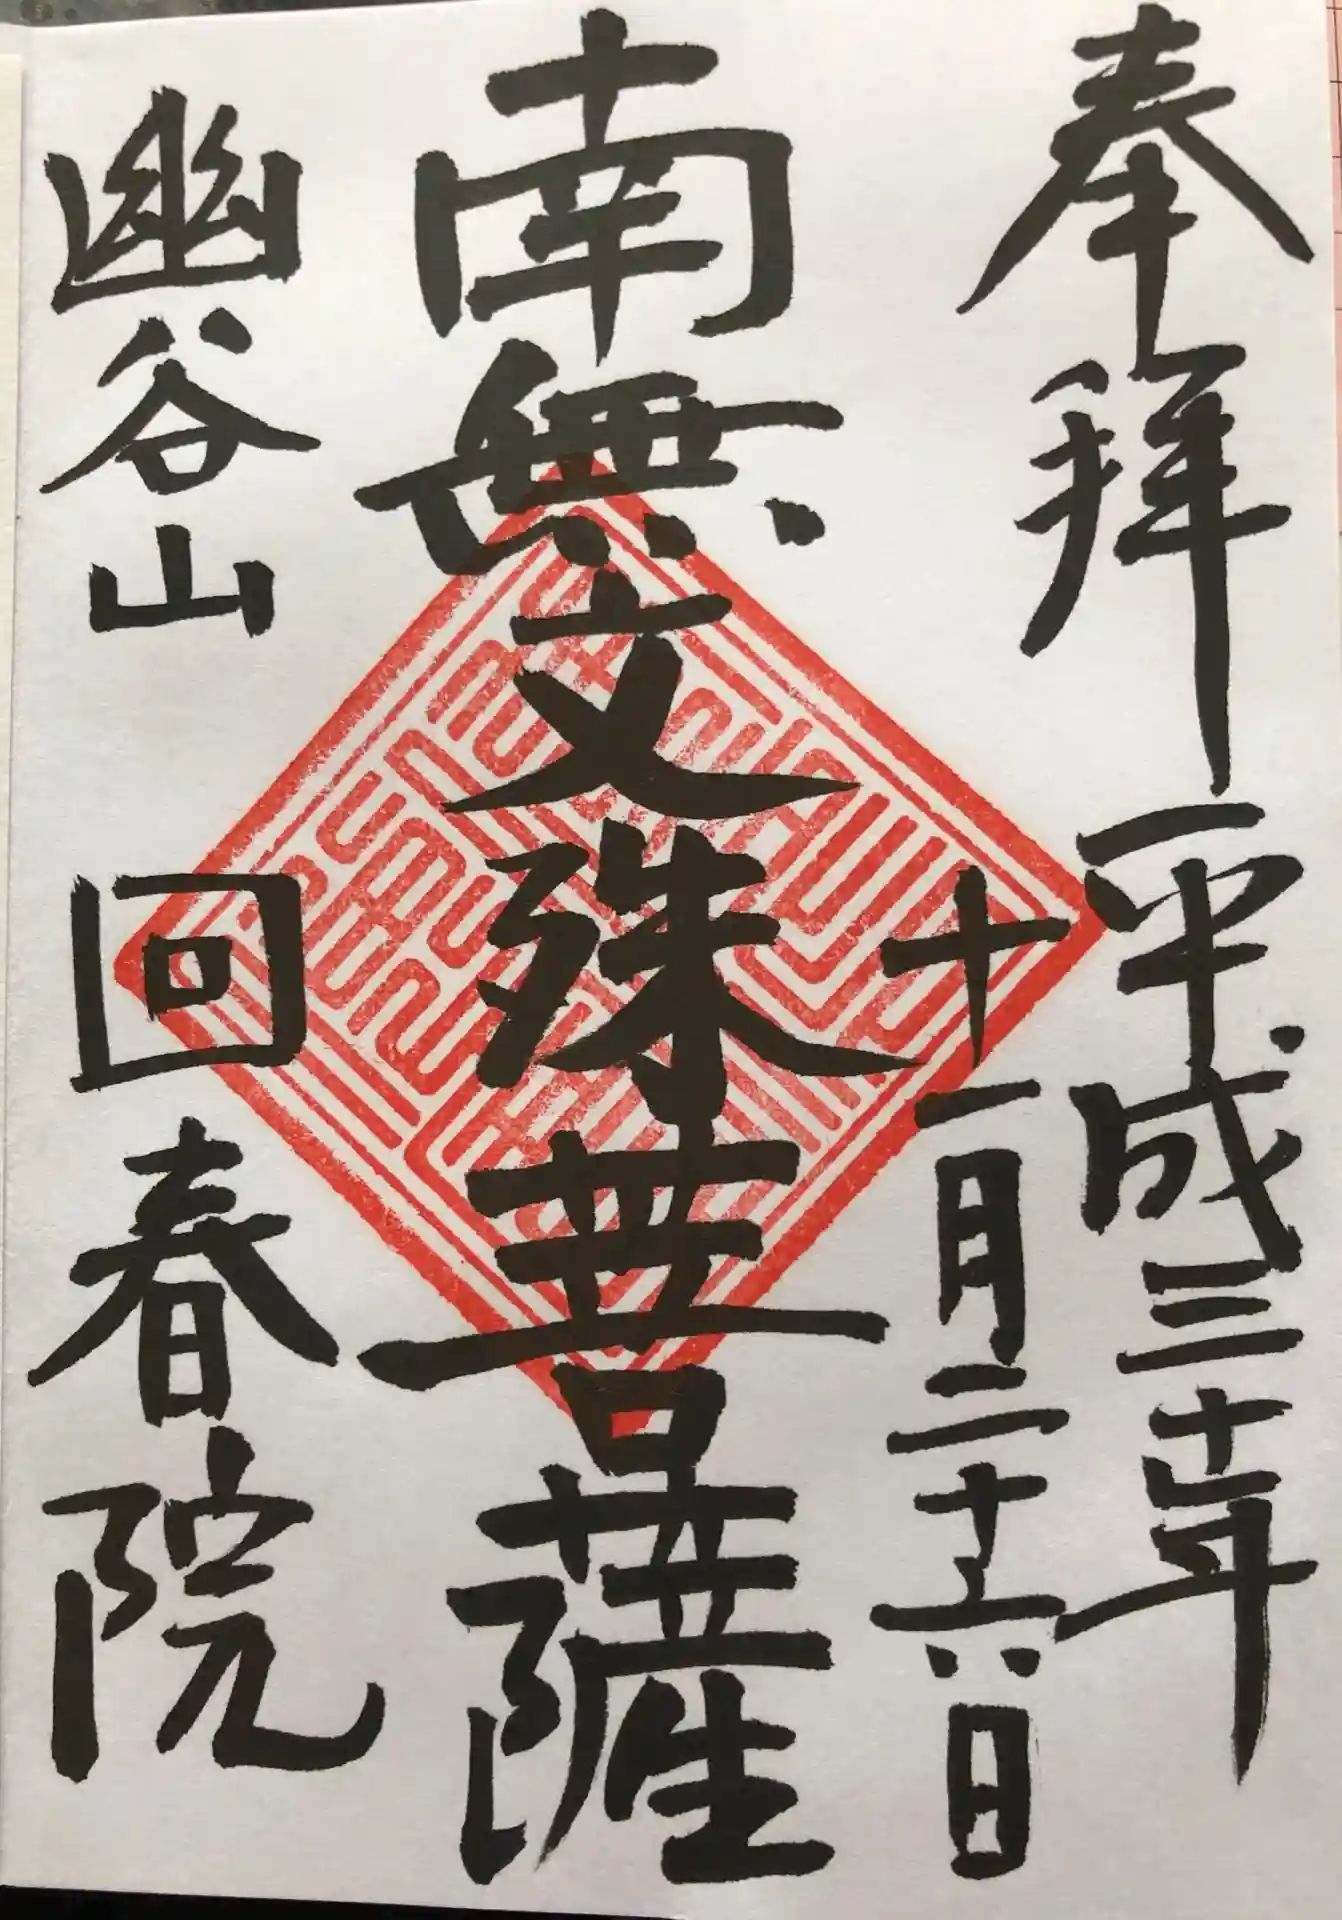 奉拝 平成三十年
十一月二十六日
南無文殊菩薩
幽谷山 回春院